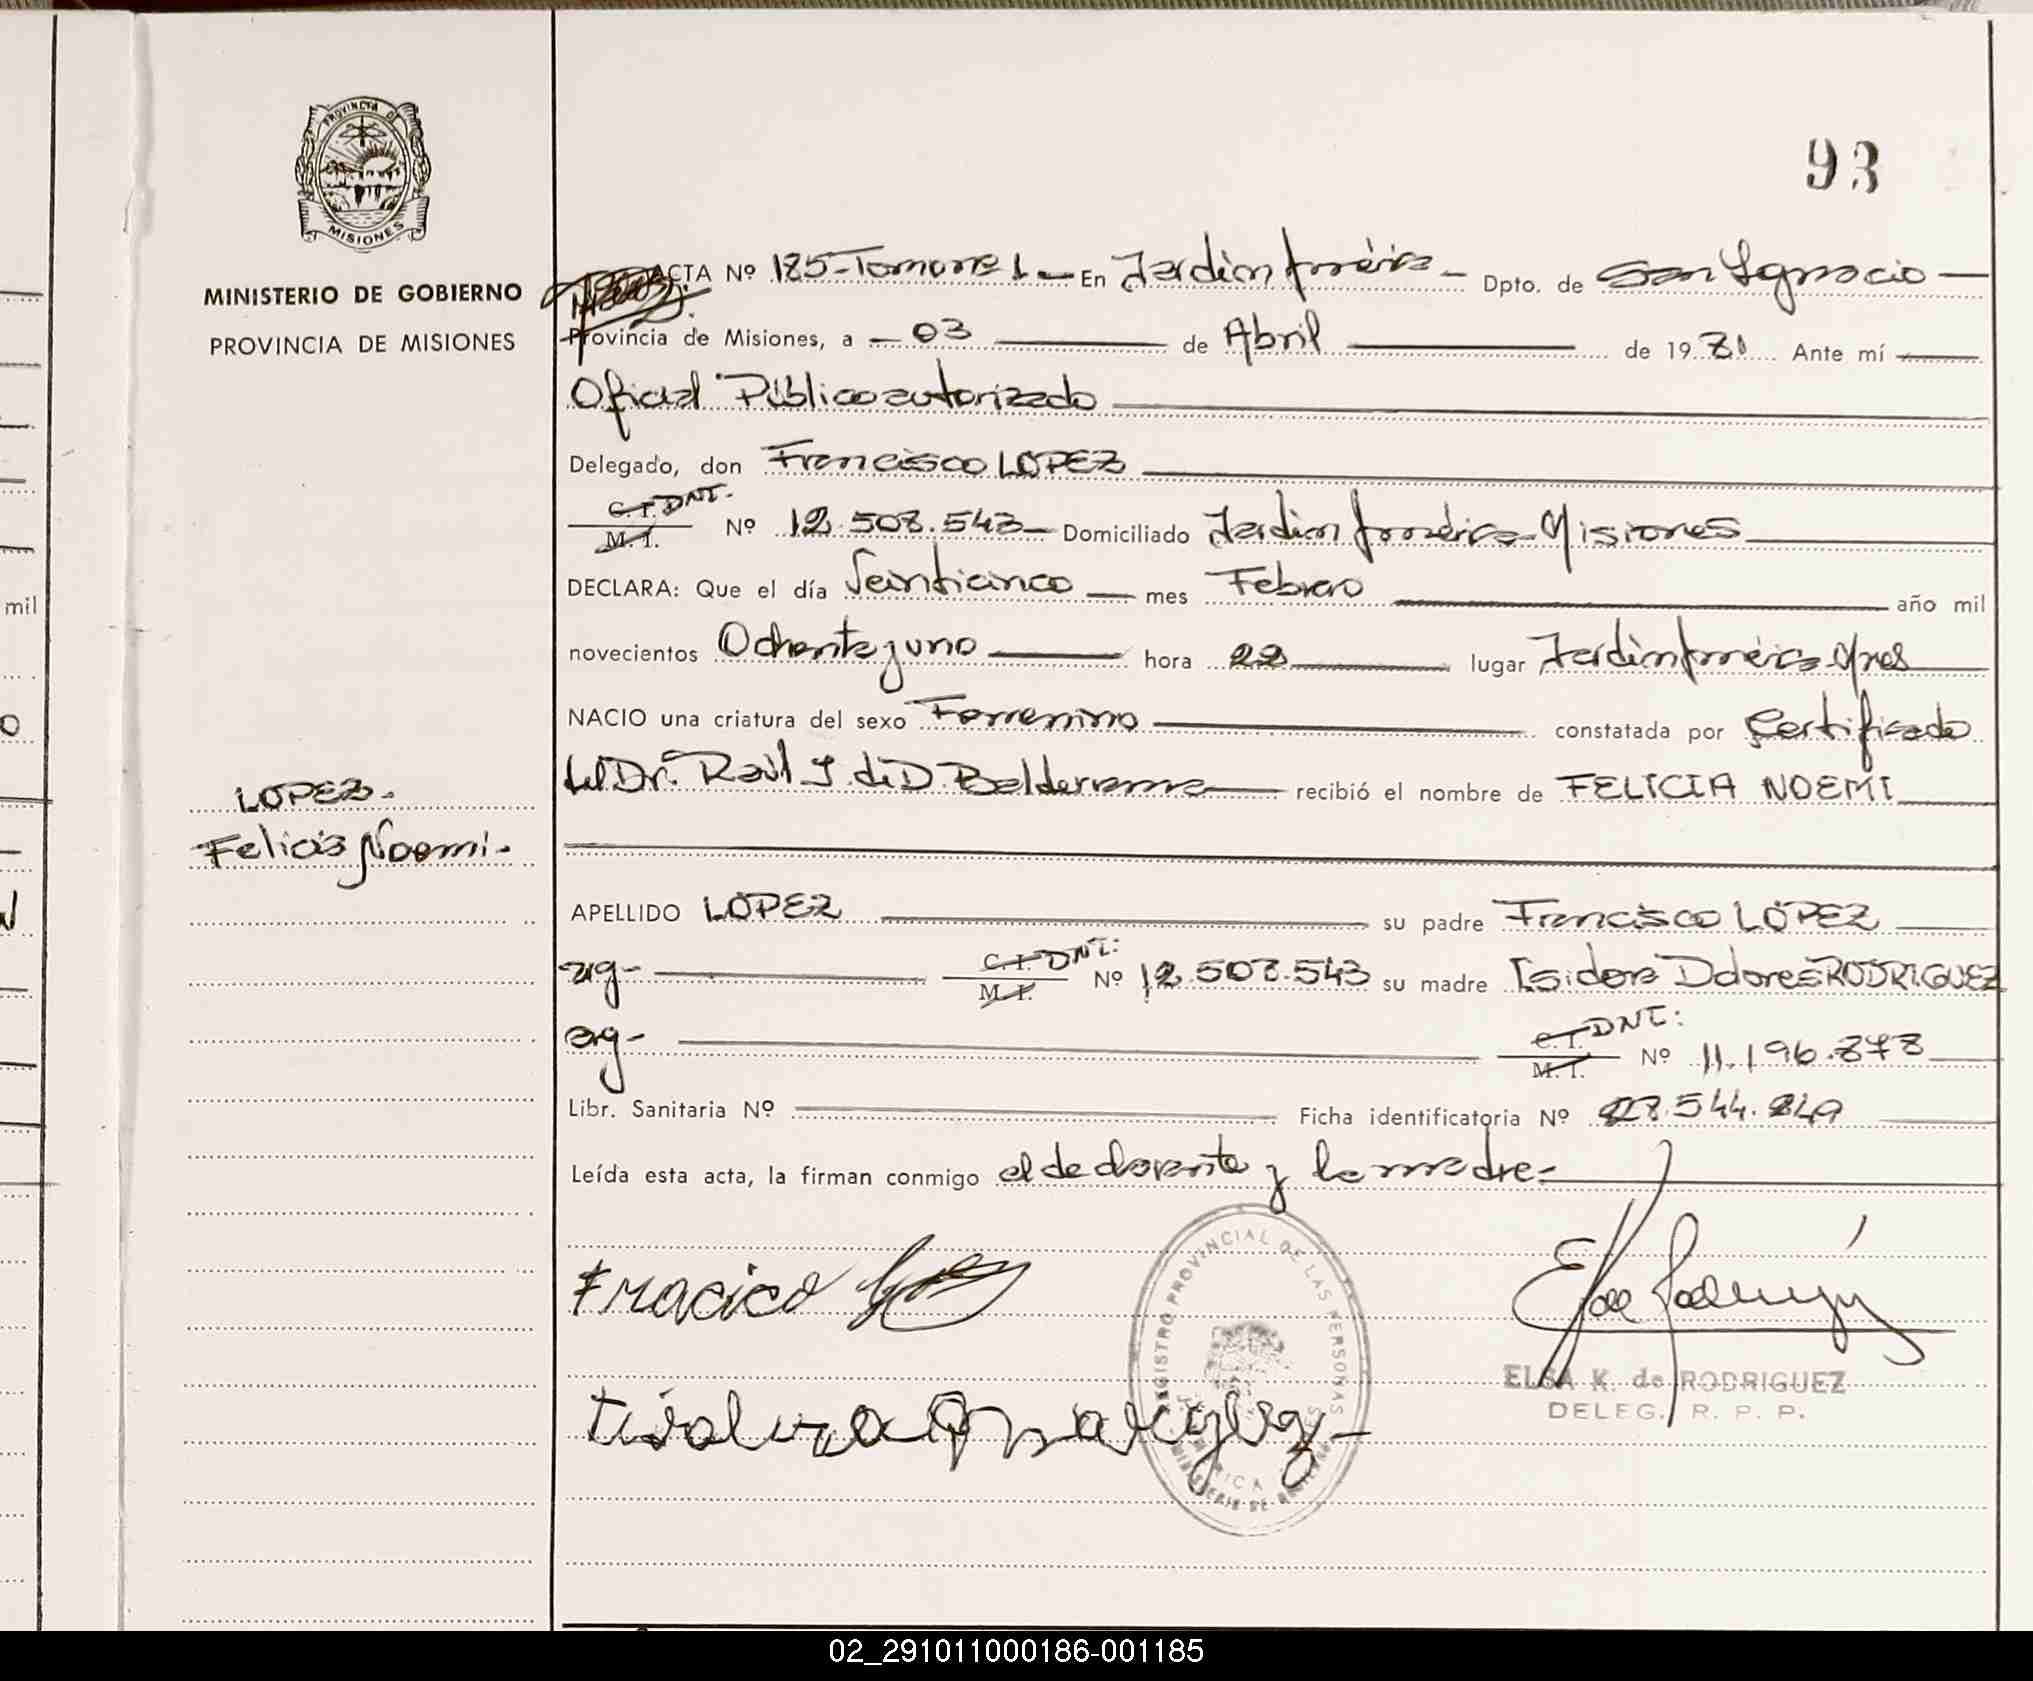 93
PROVINCIA DE
MISIONES
MINISTERIO DE GOBIERNO
PROVINCIA DE MISIONES
ACTA Nº 185-Tomo Nº 1 — En Jardin América — Dpto. de San Ignacio —
Provincia de Misiones, a — 03 — de Abril — de 19 81 Ante mí —
Oficial Público autorizado
Delegado, don Francisco LOPEZ
C.I. DNI.
M. I. Nº 12.508.543 — Domiciliado Jardin América - Misiones
DECLARA: Que el día Veinticinco — mes Febrero — año mil
novecientos Ochenta y uno — hora 22 — lugar Jardin América Mnes
NACIO una criatura del sexo Femenino — constatada por Certificado
del Dr. Raúl J. de D. Balderrama — recibió el nombre de FELICIA NOEMI
LOPEZ.
Felicia Noemi.
APELLIDO LOPEZ — su padre Francisco LÓPEZ
arg- C.I. DNI:
M. I. Nº 12.508.543 su madre Isidora Dolores RODRIGUEZ
arg- C.I. DNI:
M. I. Nº 11.196.878
Libr. Sanitaria Nº — Ficha identificatoria Nº 28.544.849
Leída esta acta, la firman conmigo el declarante y la madre.-
Fracico
REGISTRO PROVINCIAL DE LAS PERSONAS
ELSA K. de RODRIGUEZ
DELEG. R. P. P.
mil
02_291011000186-001185